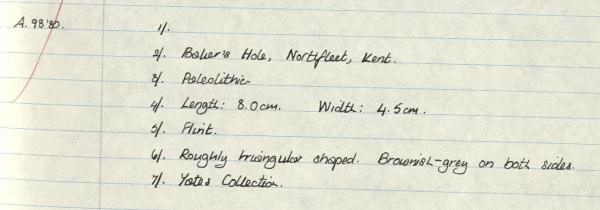 A.98'80. 1/.
2/. Baker's Hole, Northfleet, Kent.
3/. Paleolithic
4/. Length: 8.0cm. Width: 4.5cm.
5/. Flint.
6/. Roughly triangular shaped. Brownish-grey on both sides.
7/. Yates Collection.